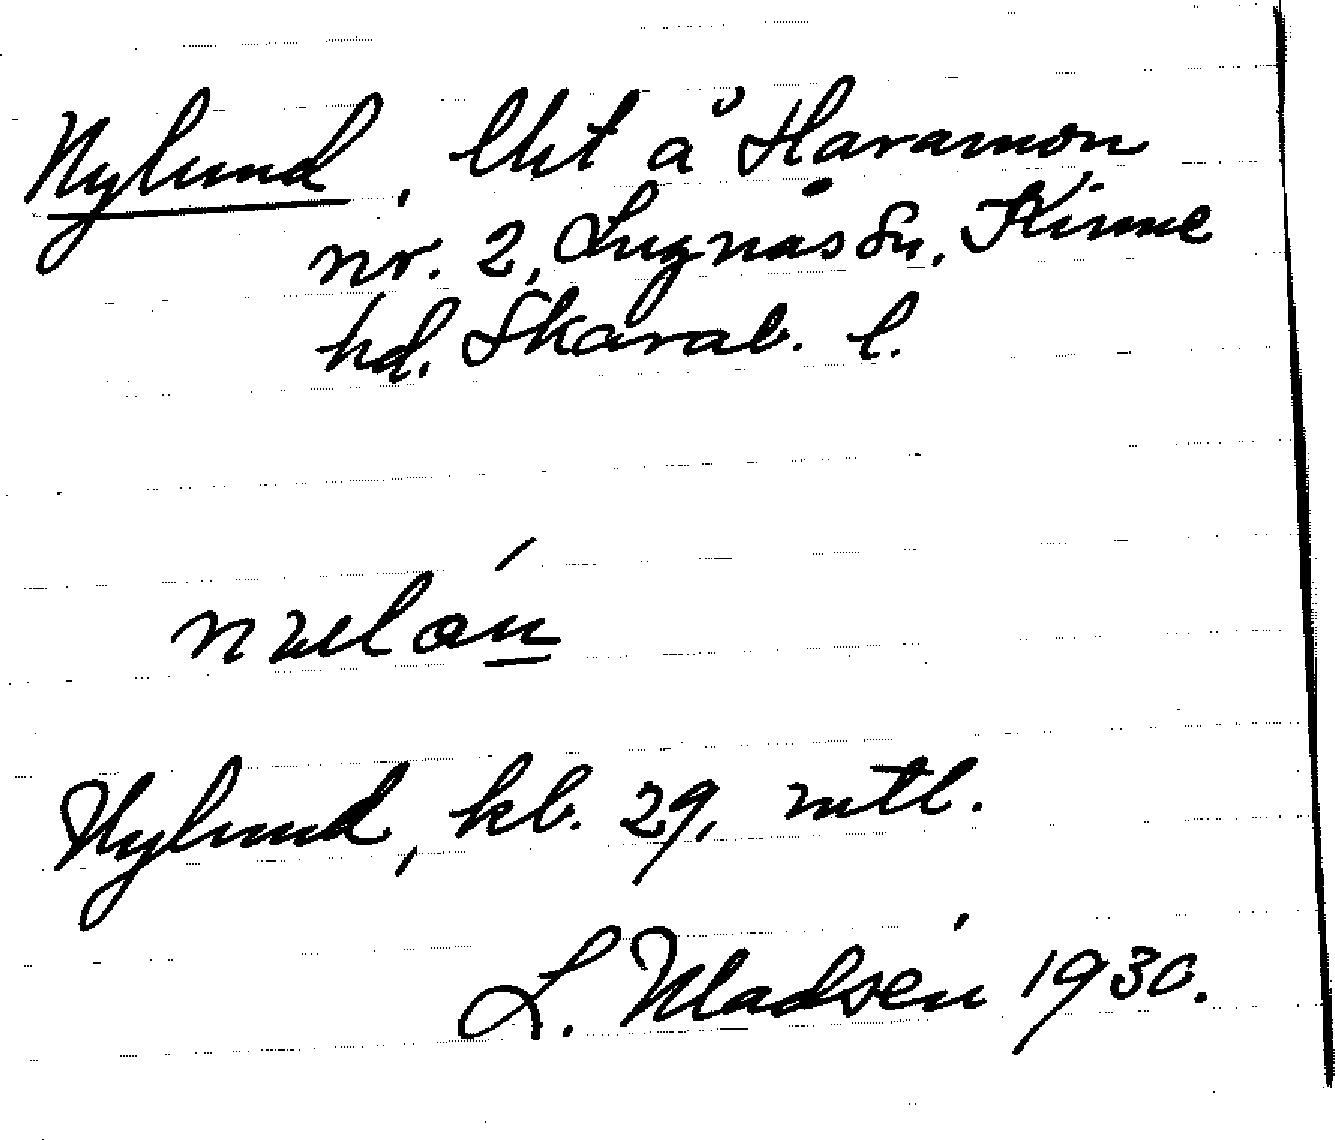 Nylund, lht å Haramon
nr. 2, Lugnås sn, Kinne
hd. Skarab. l.
Nylund, kb. 29, mtl.
L. Madsén 1930.